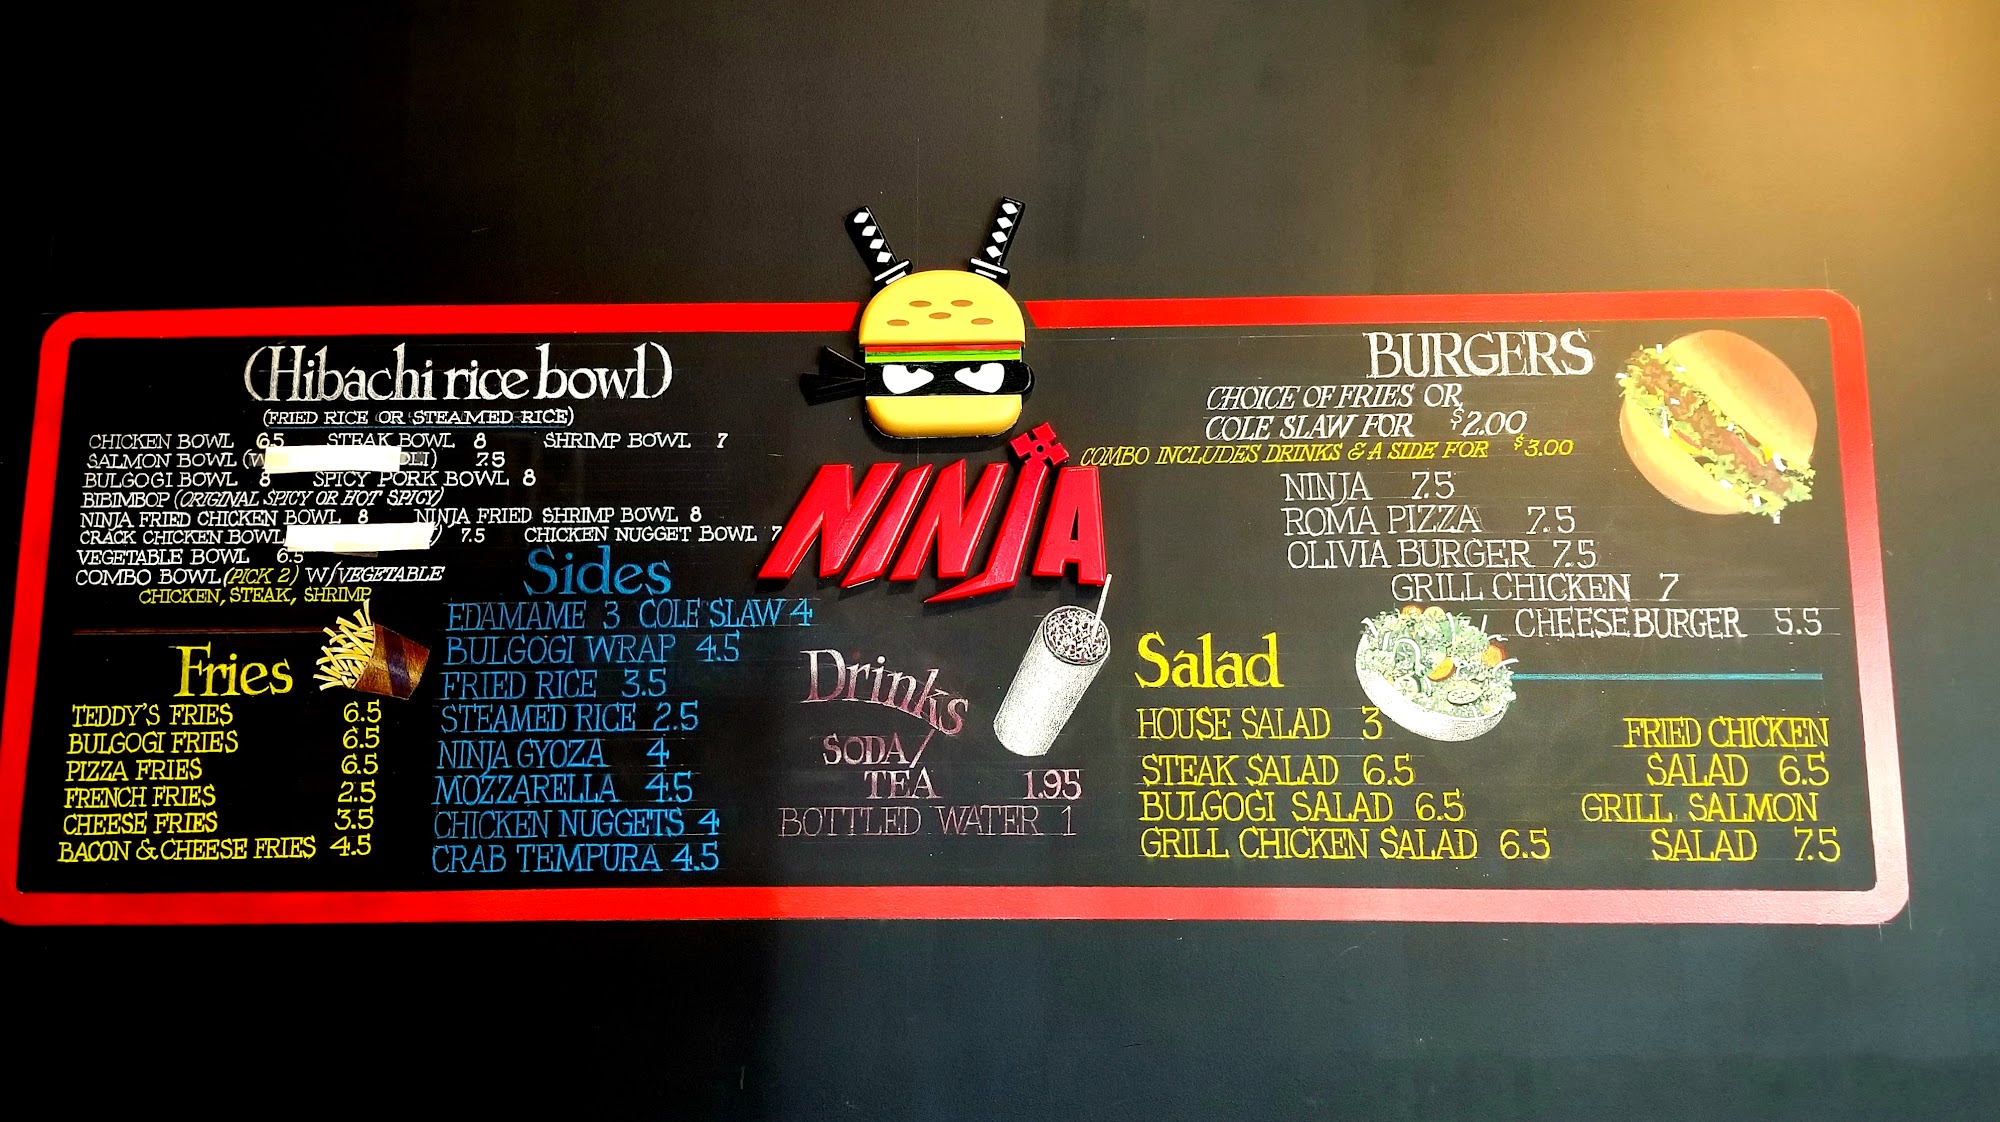 (Hibachi rice bowl)
(FRIED RICE OR STEAMED RICE)
CHICKEN BOWL 6.5 STEAK BOWL 8 SHRIMP BOWL 7
SALMON BOWL 7.5
BULGOGI BOWL 8 SPICY PORK BOWL 8
BIBIMBOP (ORIGINAL SPICY OR HOT SPICY)
NINJA FRIED CHICKEN BOWL 8 NINJA FRIED SHRIMP BOWL 8
CRACK CHICKEN BOWL 7.5 CHICKEN NUGGET BOWL 7
VEGETABLE BOWL 6.5
COMBO BOWL (PICK 2) W/VEGETABLE
CHICKEN, STEAK, SHRIMP
Fries
TEDDY'S FRIES 6.5
BULGOGI FRIES 6.5
PIZZA FRIES 6.5
FRENCH FRIES 2.5
CHEESE FRIES 3.5
BACON & CHEESE FRIES 4.5
Sides
EDAMAME 3 COLE SLAW 4
BULGOGI WRAP 4.5
FRIED RICE 3.5
STEAMED RICE 2.5
NINJA GYOZA 4
MOZZARELLA 4.5
CHICKEN NUGGETS 4
CRAB TEMPURA 4.5
NINJA
Drinks
SODA/
TEA 1.95
BOTTLED WATER 1
BURGERS
CHOICE OF FRIES OR
COLE SLAW FOR $2.00
COMBO INCLUDES DRINKS & A SIDE FOR $3.00
NINJA 7.5
ROMA PIZZA 7.5
OLIVIA BURGER 7.5
GRILL CHICKEN 7
CHEESEBURGER 5.5
Salad
HOUSE SALAD 3
STEAK SALAD 6.5
BULGOGI SALAD 6.5
GRILL CHICKEN SALAD 6.5
FRIED CHICKEN
SALAD 6.5
GRILL SALMON
SALAD 7.5